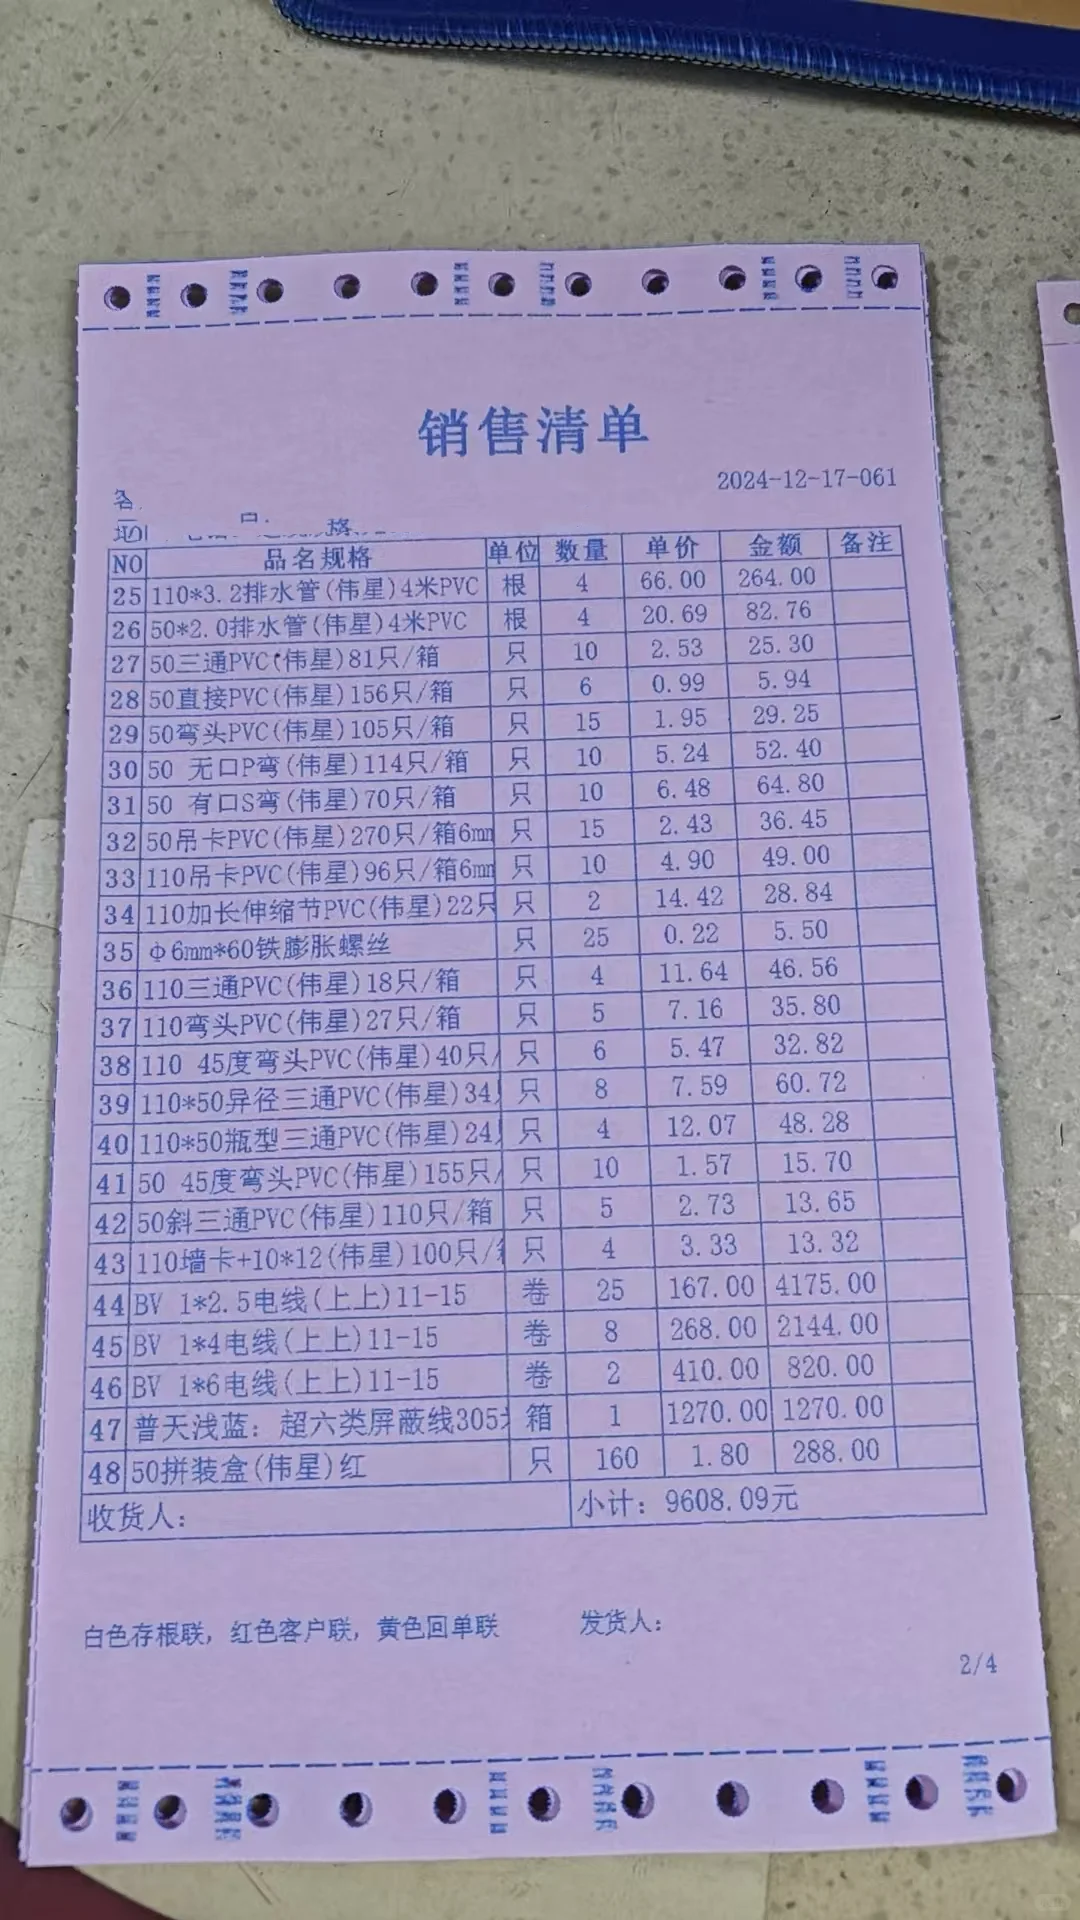 销售清单
2024-12-17-061
NO 品名规格 单位 数量 单价 金额 备注
25 110*3.2排水管(伟星)4米PVC 根 4 66.00 264.00
26 50*2.0排水管(伟星)4米PVC 根 4 20.69 82.76
27 50三通PVC(伟星)81只/箱 只 10 2.53 25.30
28 50直接PVC(伟星)156只/箱 只 6 0.99 5.94
29 50弯头PVC(伟星)105只/箱 只 15 1.95 29.25
30 50 无口P弯(伟星)114只/箱 只 10 5.24 52.40
31 50 有口S弯(伟星)70只/箱 只 10 6.48 64.80
32 50吊卡PVC(伟星)270只/箱6mm 只 15 2.43 36.45
33 110吊卡PVC(伟星)96只/箱6mm 只 10 4.90 49.00
34 110加长伸缩节PVC(伟星)22只 只 2 14.42 28.84
35 Φ6mm*60铁膨胀螺丝 只 25 0.22 5.50
36 110三通PVC(伟星)18只/箱 只 4 11.64 46.56
37 110弯头PVC(伟星)27只/箱 只 5 7.16 35.80
38 110 45度弯头PVC(伟星)40只/ 只 6 5.47 32.82
39 110*50异径三通PVC(伟星)34 只 8 7.59 60.72
40 110*50瓶型三通PVC(伟星)24 只 4 12.07 48.28
41 50 45度弯头PVC(伟星)155只/ 只 10 1.57 15.70
42 50斜三通PVC(伟星)110只/箱 只 5 2.73 13.65
43 110墙卡+10*12(伟星)100只/ 只 4 3.33 13.32
44 BV 1*2.5电线(上上)11-15 卷 25 167.00 4175.00
45 BV 1*4电线(上上)11-15 卷 8 268.00 2144.00
46 BV 1*6电线(上上)11-15 卷 2 410.00 820.00
47 普天浅蓝：超六类屏蔽线305 箱 1 1270.00 1270.00
48 50拼装盒(伟星)红 只 160 1.80 288.00
收货人： 小计：9608.09元
白色存根联，红色客户联，黄色回单联 发货人：
2/4